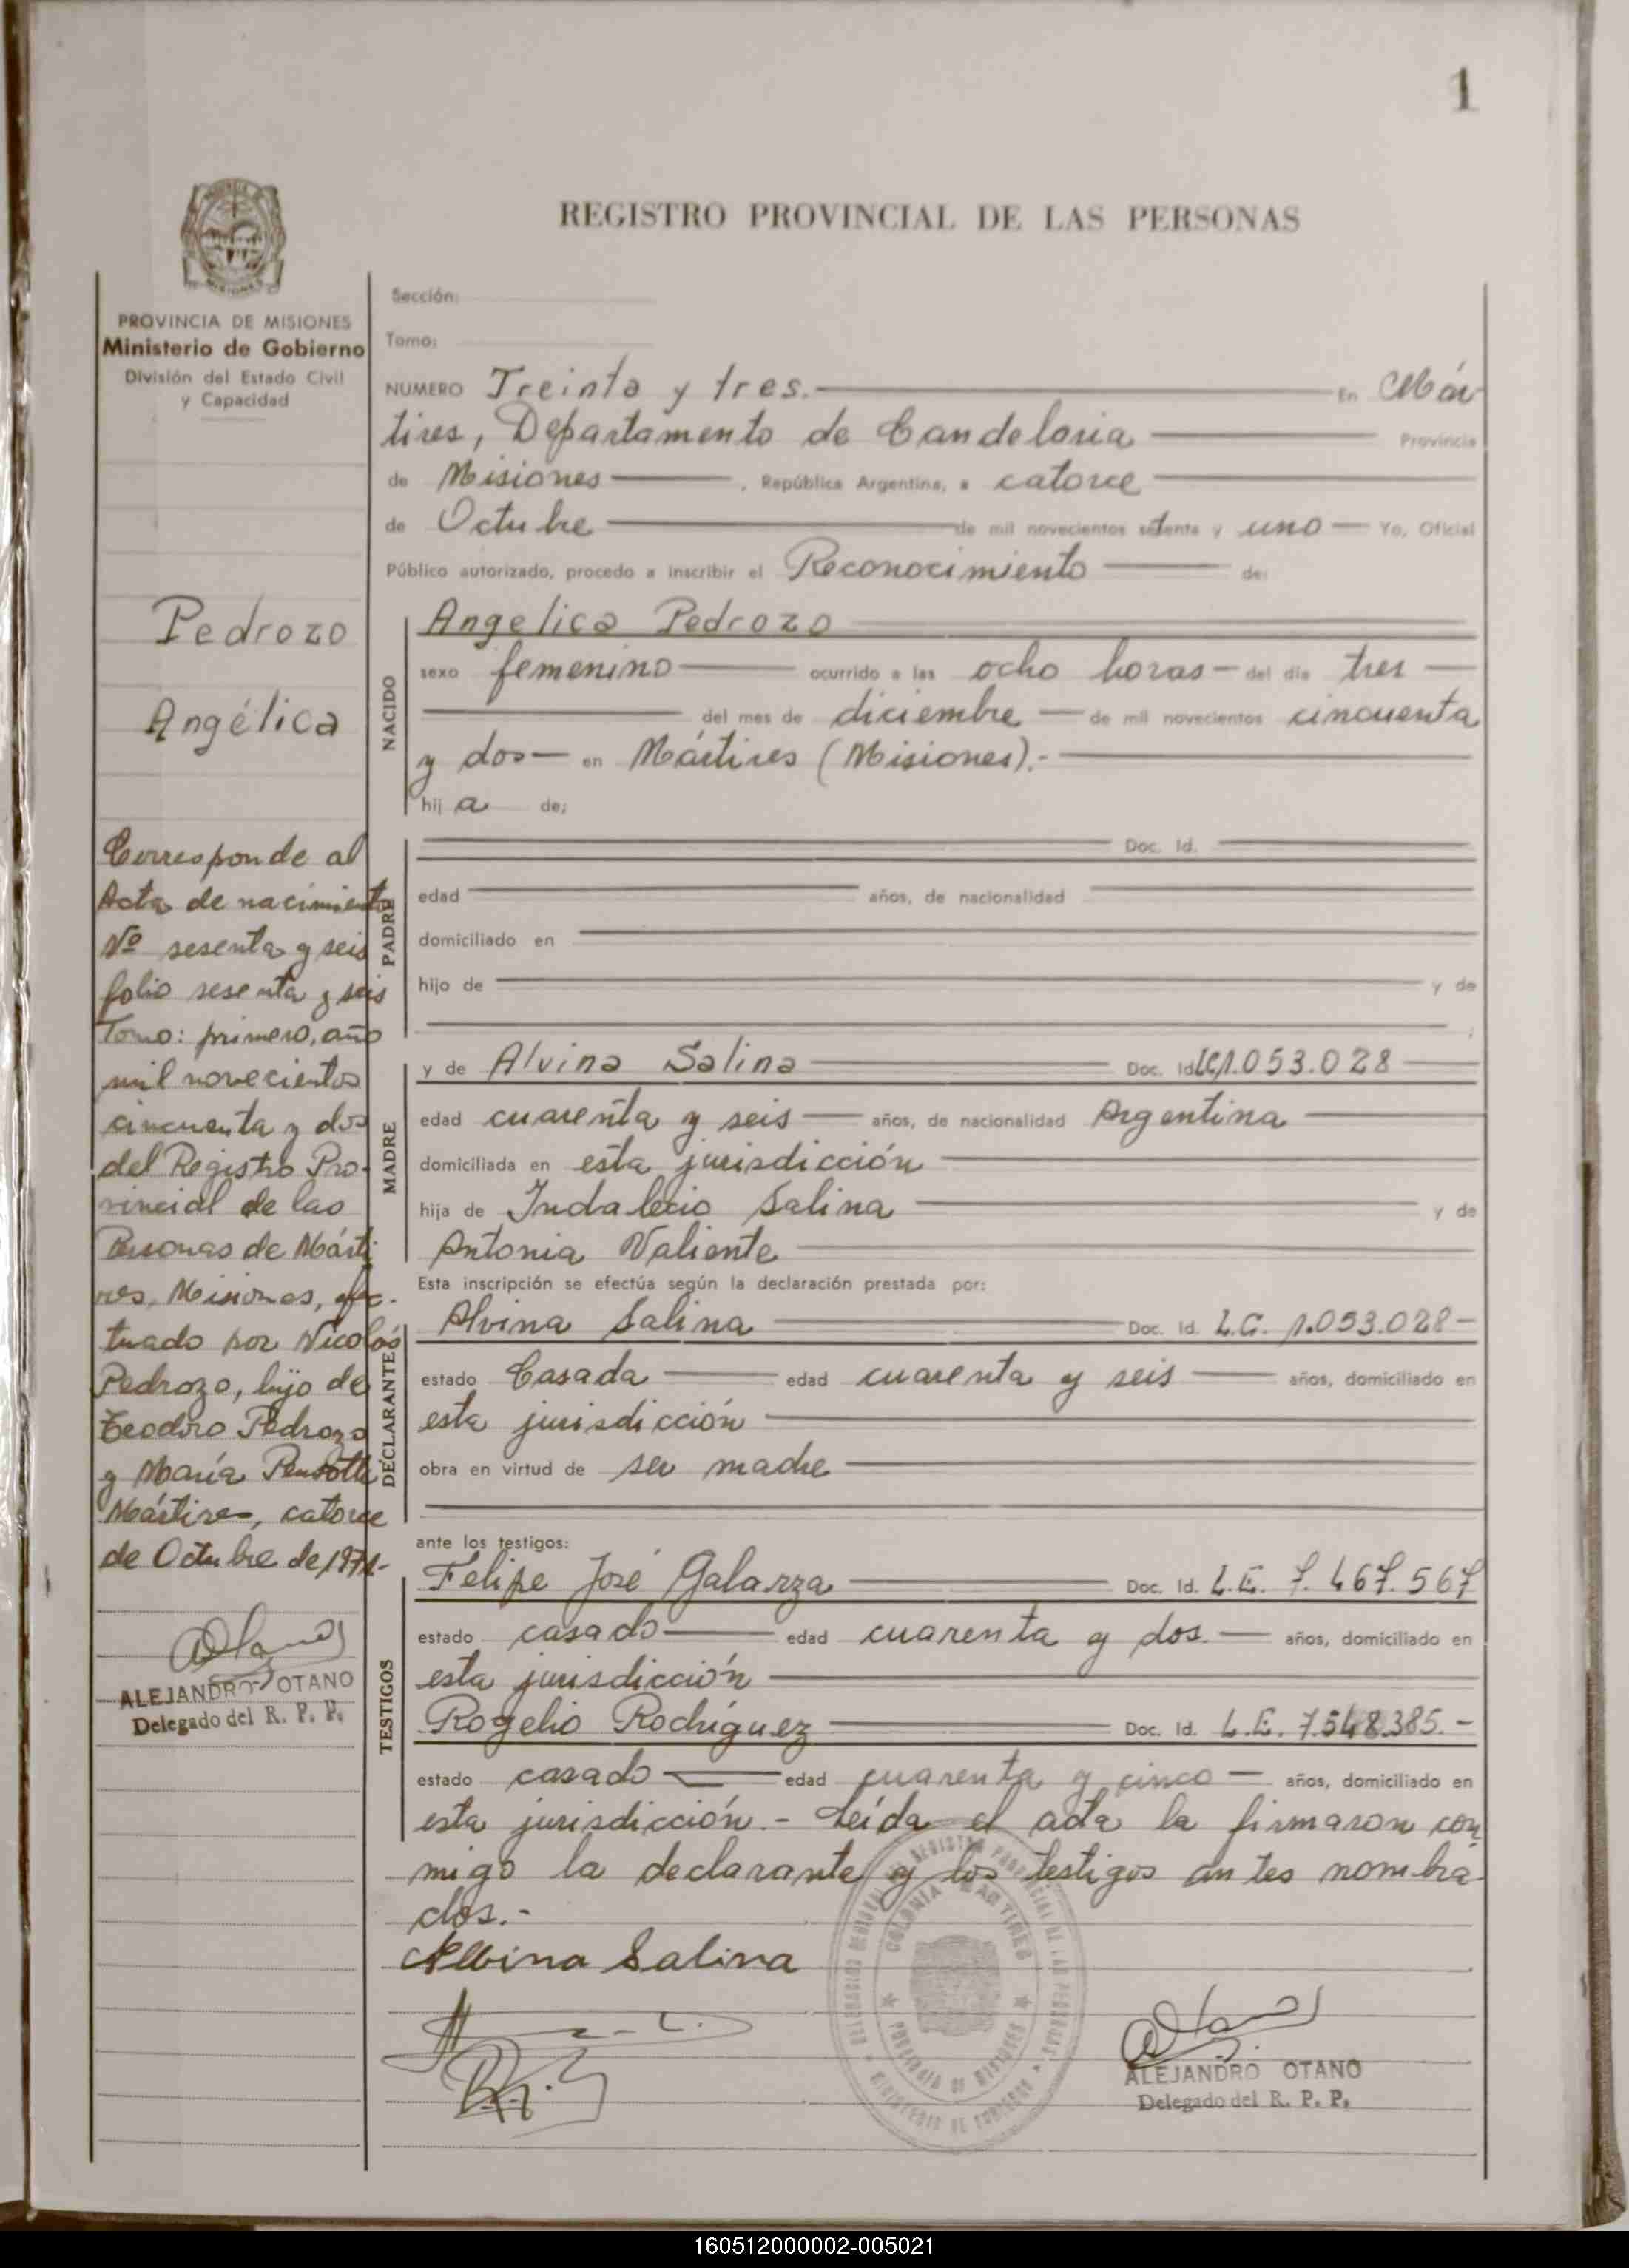 1
REGISTRO PROVINCIAL DE LAS PERSONAS
PROVINCIA DE MISIONES
Ministerio de Gobierno
División del Estado Civil
y Capacidad
Pedrozo
Angélica
Corresponde al
Acta de nacimiento
Nº sesenta y seis
folio sesenta y seis
Tomo: primero, año
mil novecientos
cincuenta y dos
del Registro Pro-
vincial de las
Personas de Márti
res, Misiones, efec-
tuado por Nicolás
Pedrozo, hijo de
Teodoro Pedrozo
y María
Mártires, catorce
de Octubre de 1971-
ALEJANDRO OTANO
Delegado del R. P. P.
Sección:
Tomo:
NUMERO Treinta y tres.- En Már
tires, Departamento de Candelaria Provincia
de Misiones , República Argentina, a catorce
de Octubre de mil novecientos setenta y uno Yo, Oficial
Público autorizado, procedo a inscribir el Reconocimiento de:
NACIDO
Angelica Pedrozo
sexo femenino ocurrido a las ocho horas del día tres
del mes de diciembre de mil novecientos cincuenta
y dos en Mártires (Misiones).-
hij a de;
PADRE
Doc. Id.
edad años, de nacionalidad
domiciliado en
hijo de y de
;
MADRE
y de Alvina Salina Doc. Id LC 1.053.028
edad cuarenta y seis años, de nacionalidad Argentina
domiciliada en esta jurisdicción
hija de Indalecio Salina y de
Antonia Valiente
Esta inscripción se efectúa según la declaración prestada por:
DECLARANTE
Alvina Salina Doc. Id. L.C. 1.053.028-
estado Casada edad cuarenta y seis años, domiciliado en
esta jurisdicción
obra en virtud de ser madre
ante los testigos:
TESTIGOS
Felipe José Galarza Doc. Id. L.E. 7.467.567
estado casado edad cuarenta y dos.- años, domiciliado en
esta jurisdicción
Rogelio Rodríguez Doc. Id. L.E. 7.548.385.-
estado casado edad cuarenta y cinco años, domiciliado en
esta jurisdicción.- Leída el acta la firmaron con
migo la declarante y los testigos antes nombra
dos.-
Albina Salina
COLONIA MARTIRES
PROVINCIA DE MISIONES
ALEJANDRO OTANO
Delegado del R. P. P.
160512000002-005021